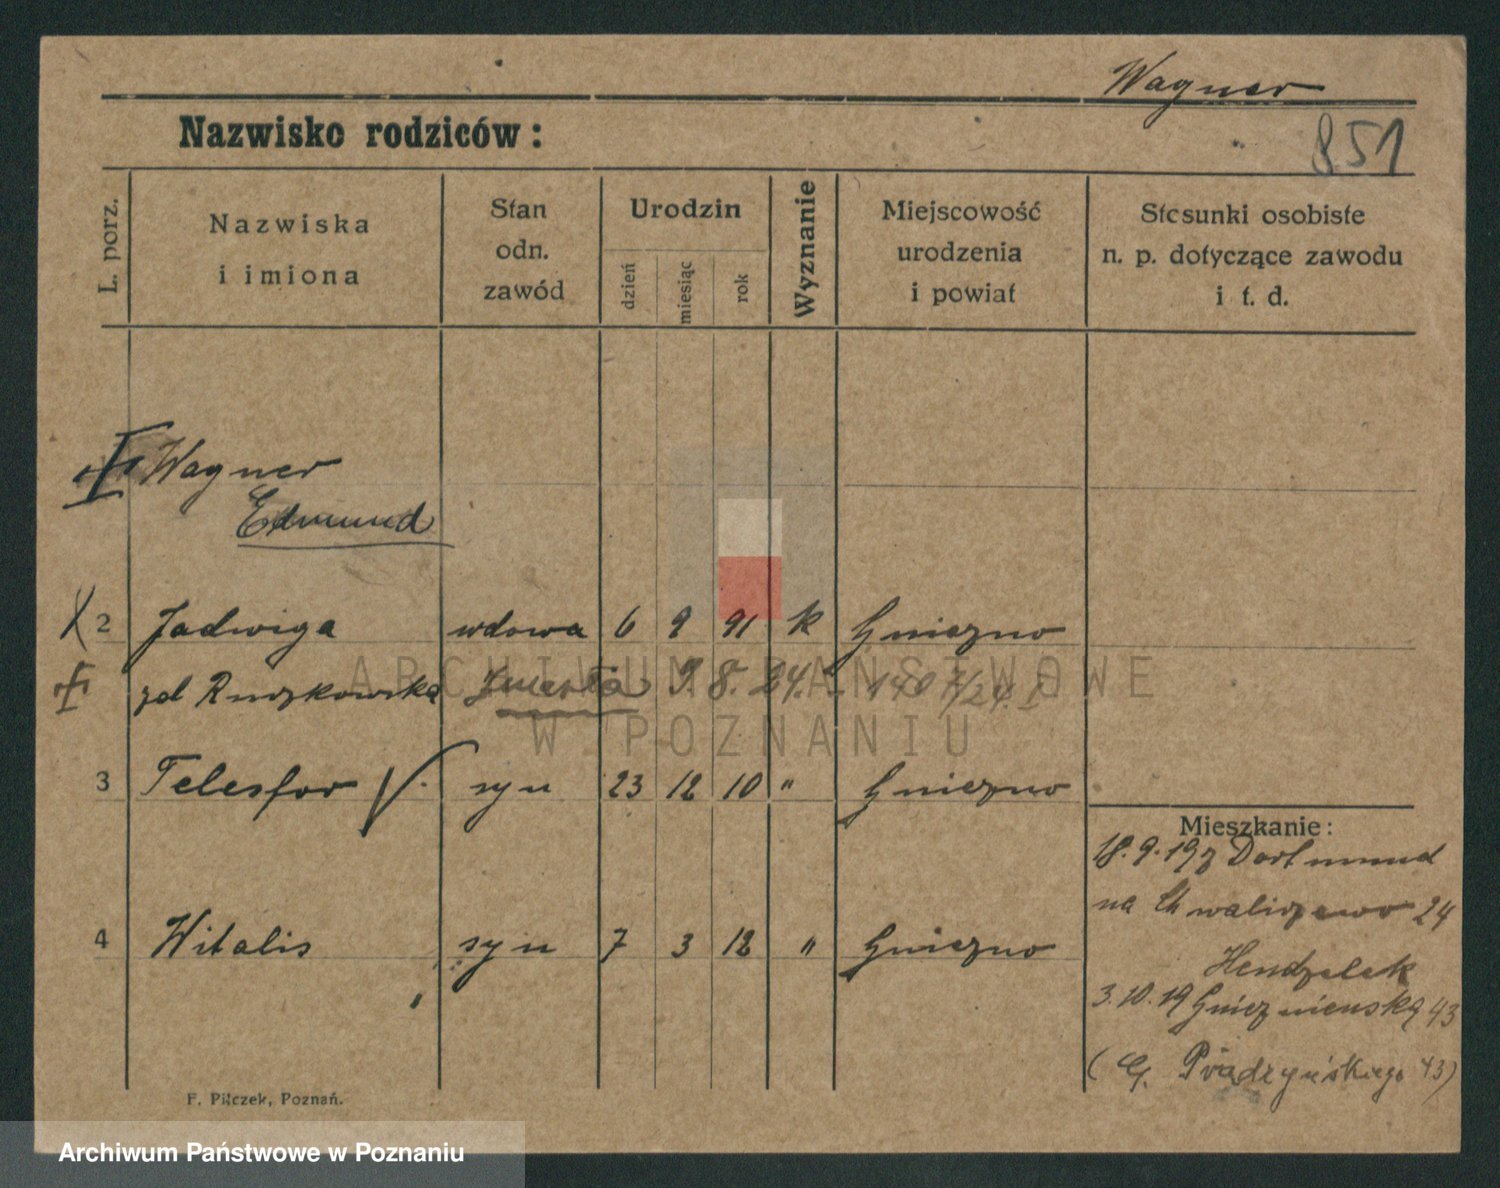 Wagner
Nazwisko rodziców:
851
L. porz.
Nazwiska
i imiona
Stan
odn.
zawód
Urodzin
dzień
miesiąc
rok
Wyznanie
Miejscowość
urodzenia
i powiat
Stosunki osobiste
n. p. dotyczące zawodu
i t. d.
Wagner
Edmund
2 Jadwiga wdowa 6 9 91 k Gniezno
zd Ruszkowska Zmarła 9. 8. 24.
3 Telesfor syn 23 12 10 " Gniezno
Mieszkanie:
18.9.19 z Dortmund
na Chwaliszewo 24
4 Witalis syn 7 3 12 " Gniezno
Hendzelek
3.10.19 Gnieznienska 43
( G. Prądzyńskiego 43)
F. Pilczek, Poznań.
ARCHIWUM PAŃSTWOWE
W POZNANIU
Archiwum Państwowe w Poznaniu